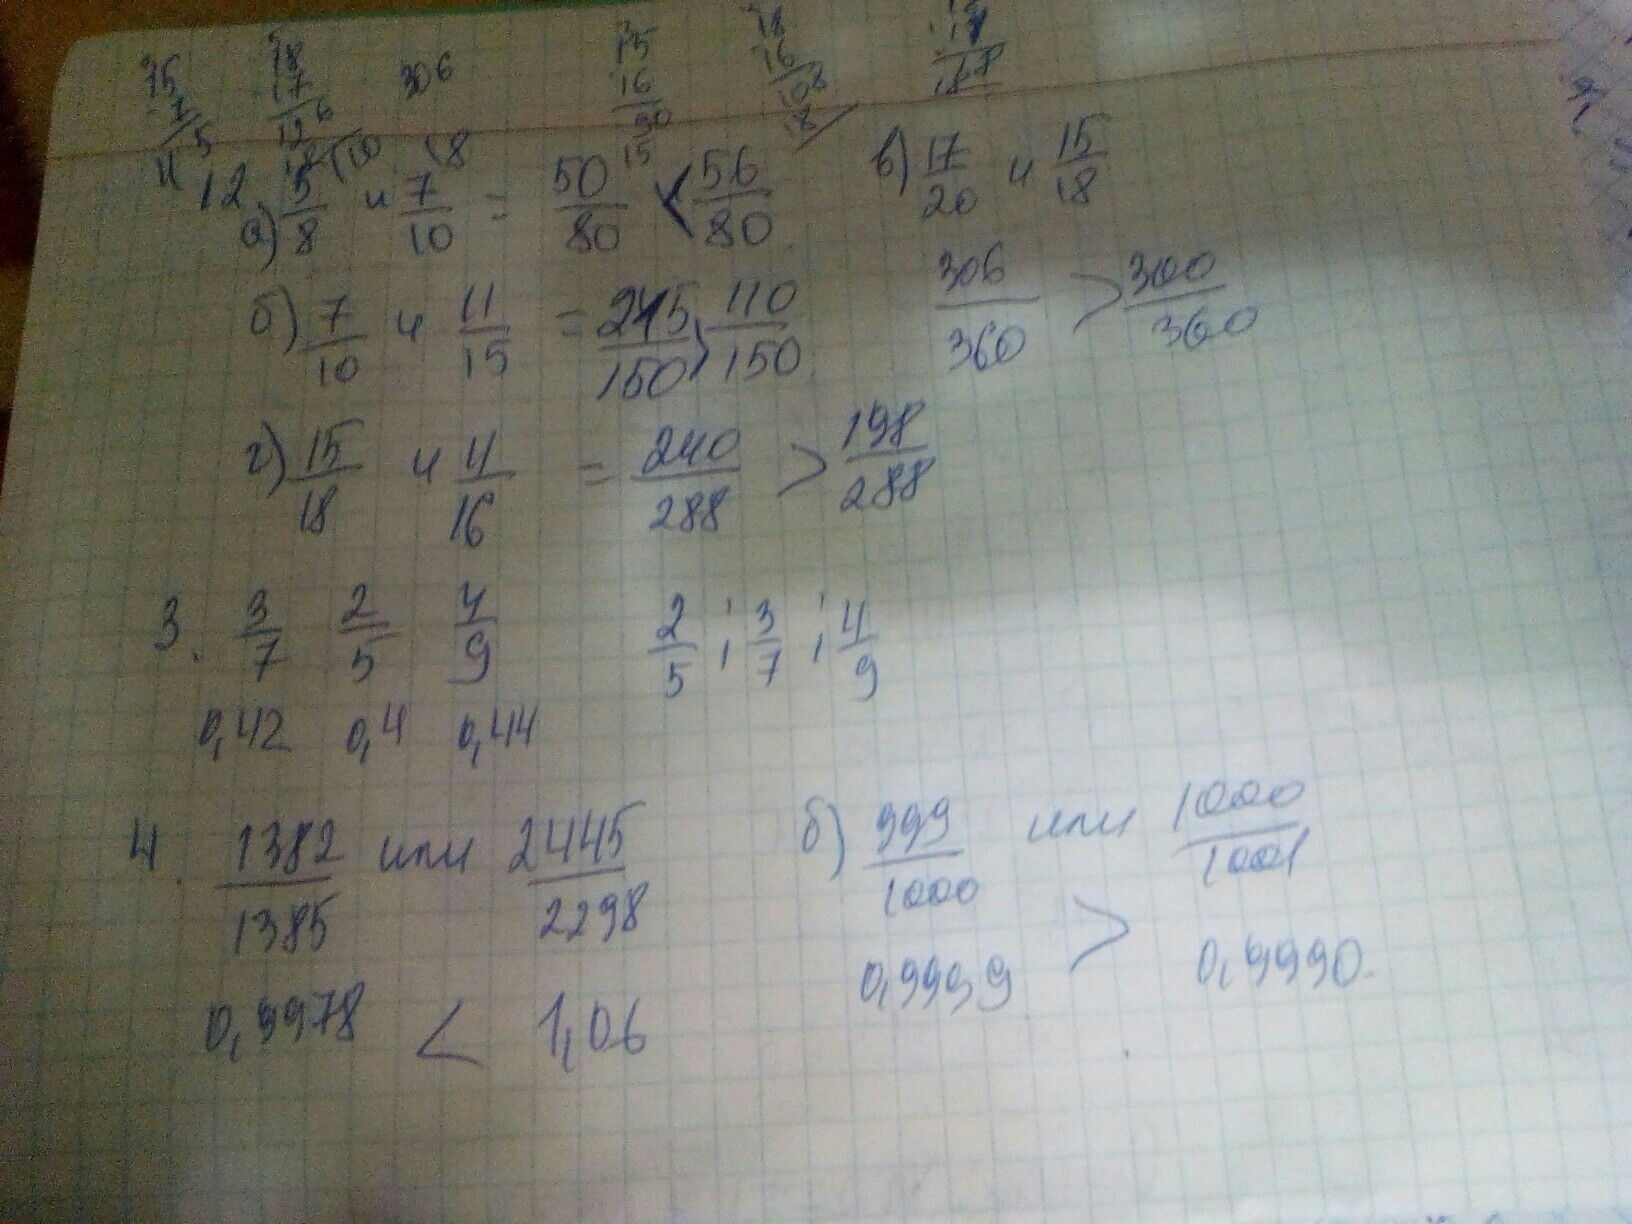 75 18 306 15 18 17
7 17 16 16
126 90 108
5 15 18
12 а) 5/8 и 7/10 = 50/80 < 56/80 в) 17/20 и 15/18
306/360 > 300/360
б) 7/10 и 11/15 = 245/150 > 110/150
г) 15/18 и 11/16 = 240/288 > 198/288
3. 3/7 2/5 4/9 2/5 ; 3/7 ; 4/9
0,42 0,4 0,44
4. 1382/1385 или 2445/2298 б) 999/1000 или 1000/1001
0,9978 < 1,06 0,9999 > 0,9990